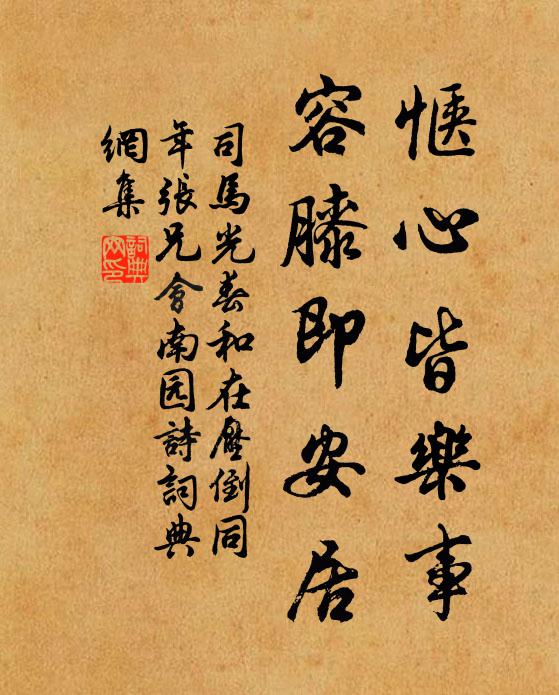 愜心皆樂事
容膝即安居
司馬光春和在倒同
年張兄會南园詩詞典
網集
詞典
网印